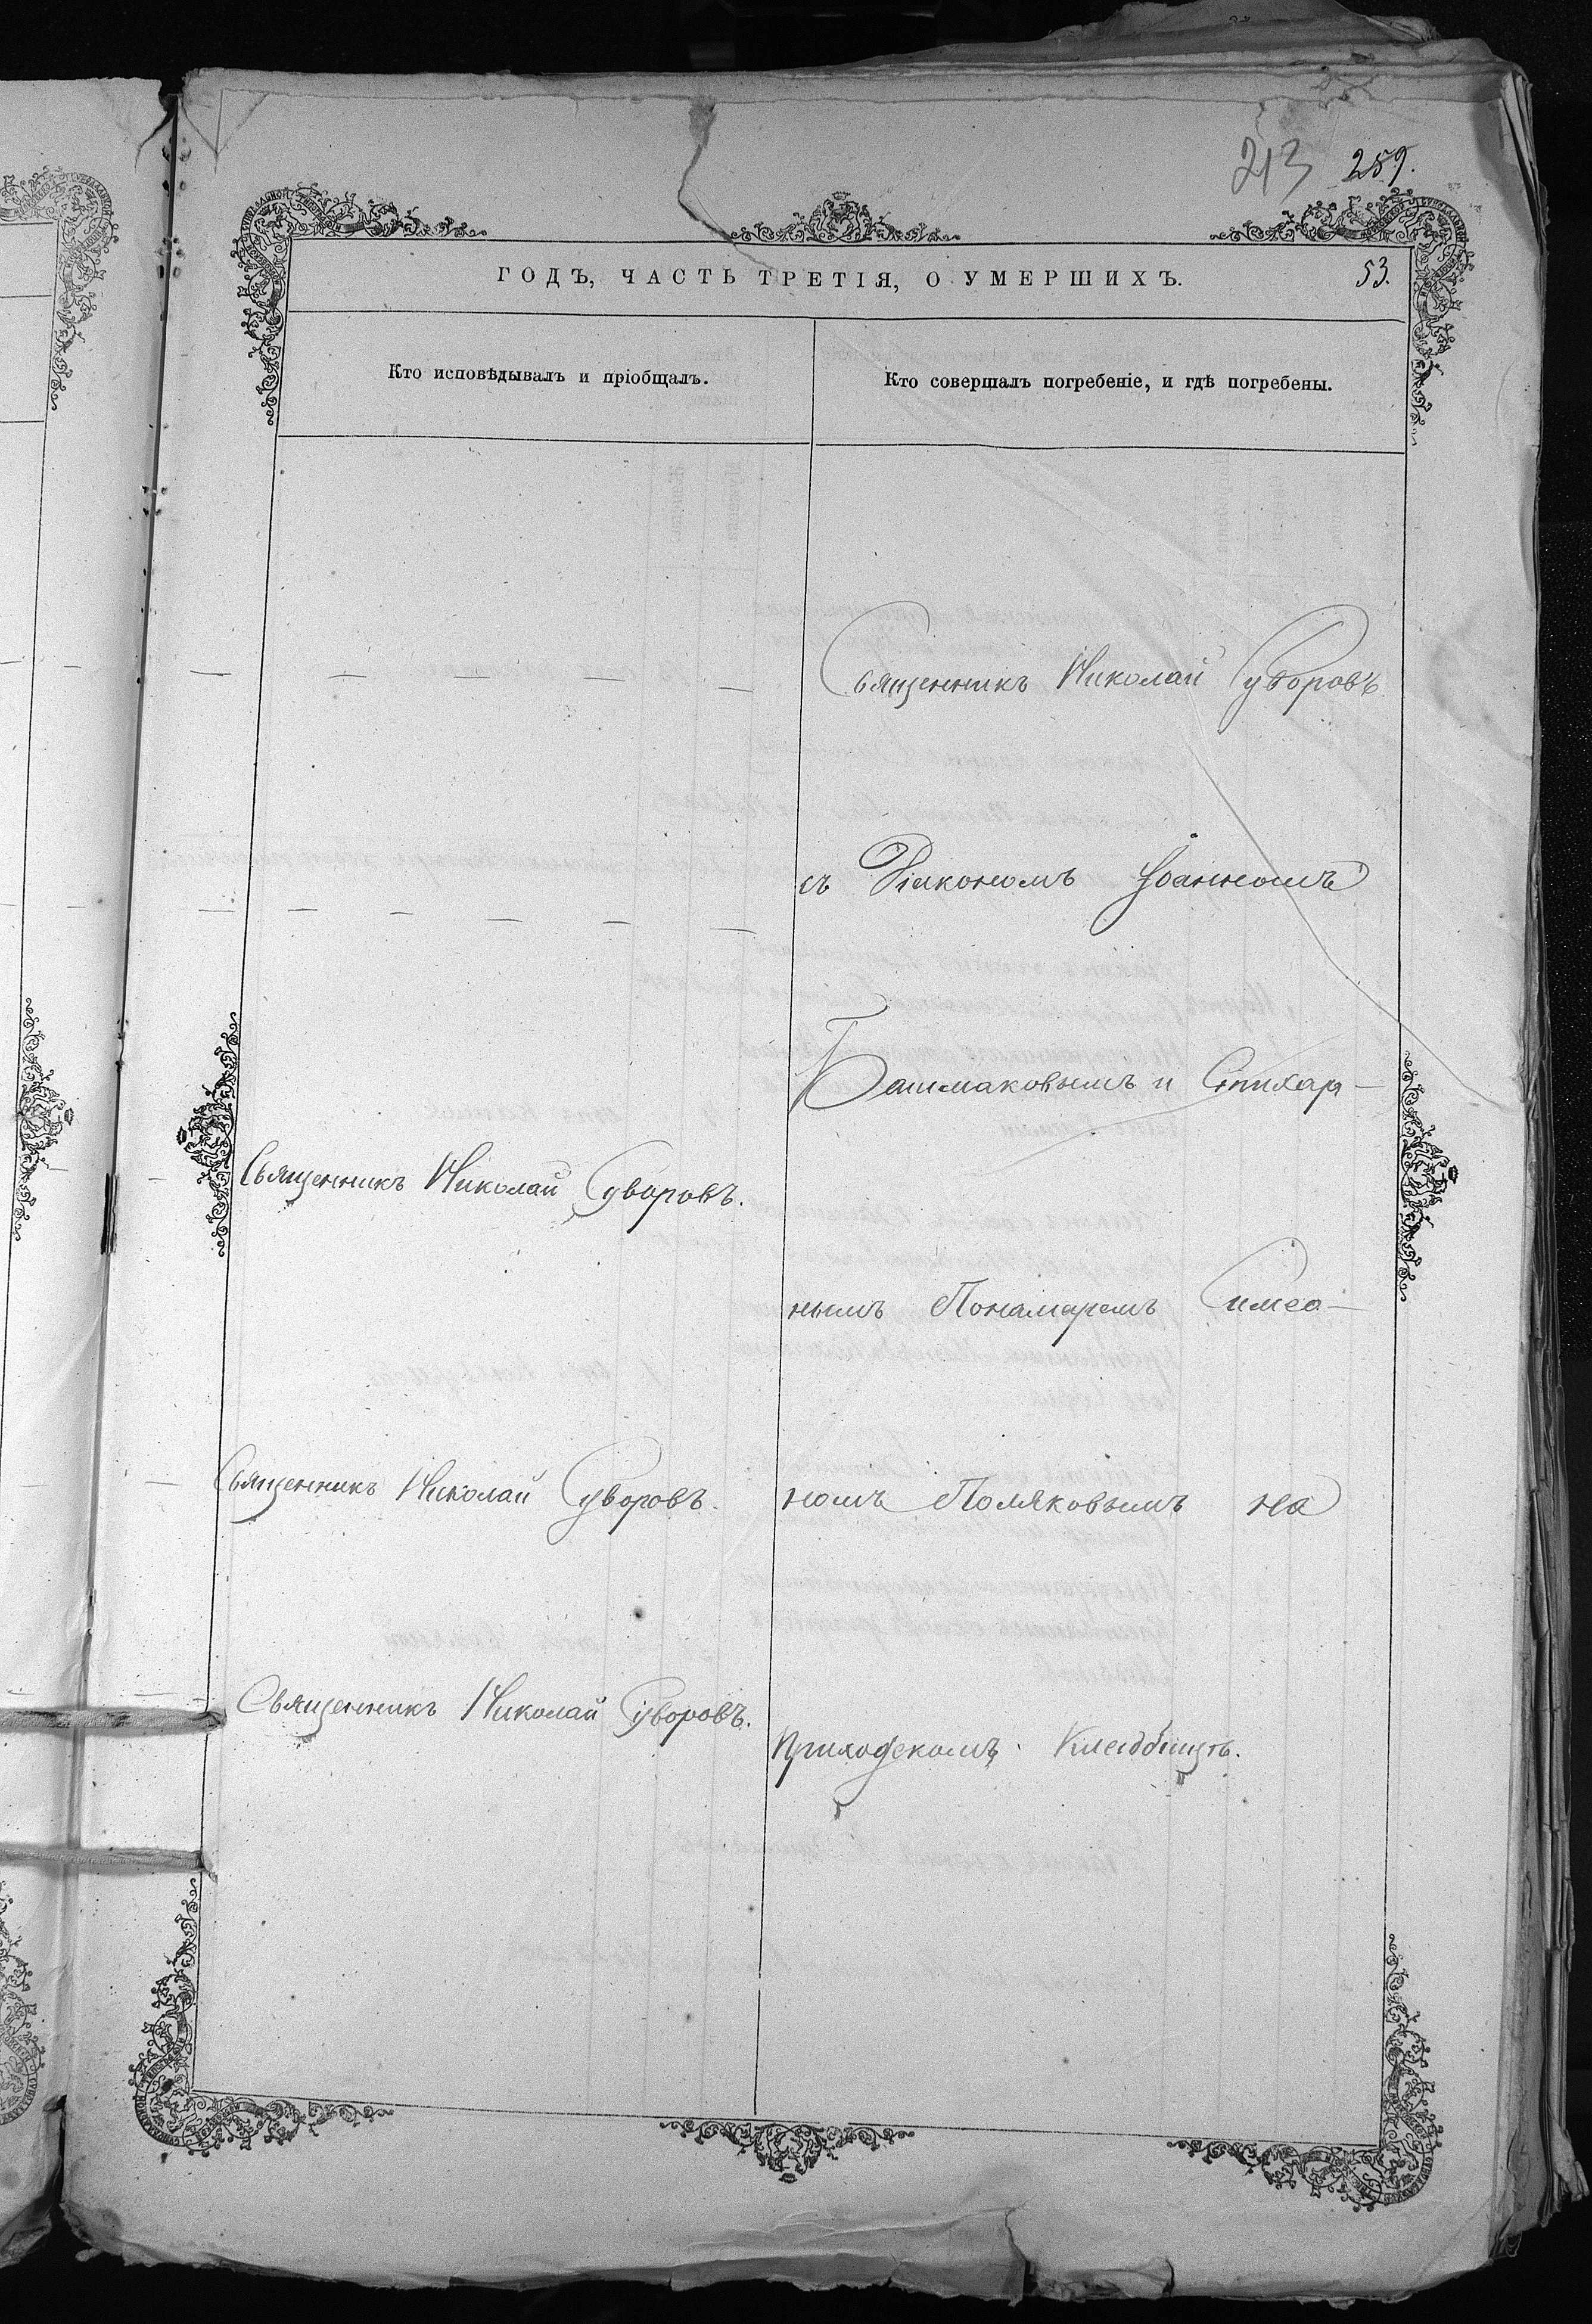 213 259.
ГОДЪ, ЧАСТЬ ТРЕТІЯ, О УМЕРШИХЪ. 53.
Кто исповѣдывалъ и пріобщалъ.
Кто совершалъ погребеніе, и гдѣ погребены.
Священникъ Николай Суворовъ
съ Діакономъ Іоанномъ
Башмаковымъ и Стихар-
Священникъ Николай Суворовъ.
нымъ Понамаремъ Симео-
Священникъ Николай Суворовъ.
номъ Поляковымъ на
Священникъ Николай Суворовъ.
Приходскомъ Кладбищѣ.